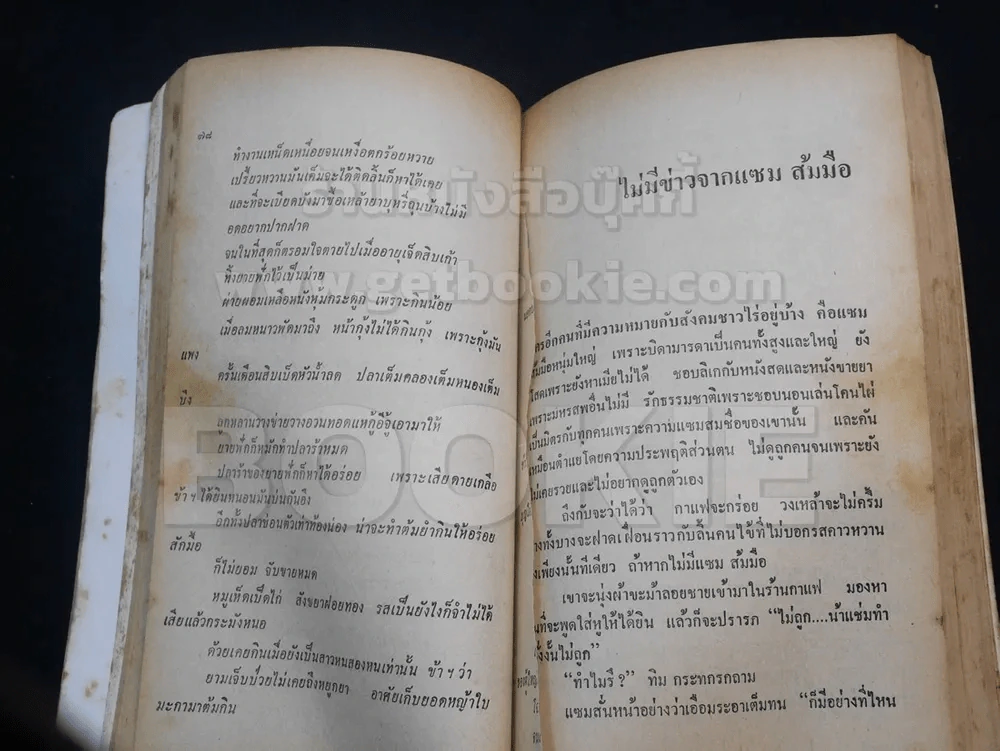 ๗๘
ทำงานเหน็ดเหนื่อยจนเหงื่อตกร้อยหวาย
เปรี้ยวหวานมันเค็มจะได้ติดลิ้นก็หาได้เคย
และที่จะเบียดบังมาซื้อเหล้ายาบุหรี่ฉุนบ้างไม่มี
อดอยากปากฝาด
จนในที่สุดก็ตรอมใจตายไปเมื่ออายุเจ็ดสิบเก้า
ทิ้งยายพักไว้เป็นม่าย
ผ่ายผอมเหลือหนังหุ้มกระดูก เพราะกินน้อย
เมื่อลมหนาวพัดมาถึง หน้ากุ้งไม่ได้กินกุ้ง เพราะกุ้งมัน
แพง
ครั้นเดือนสิบเบ็ดหัวน้ำลด ปลาเต็มคลองเต็มหนองเต็ม
บึง
ลูกหลานวางข่ายวางอวนทอดแหกู้อีจู้เอามาให้
ยายพักก็หมักทำปลาร้าหมด
ปลาร้าของยายพักก็หาได้อร่อย เพราะเสียดายเกลือ
ข้าฯได้ยินหนอนมันบ่นกันอึง
อีกทั้งปลาช่อนตัวเท่าท้องน่อง น่าจะทำต้มยำกินให้อร่อย
สักมื้อ
ก็ไม่ยอม จับขายหมด
หมูเห็ดเป็ดไก่ สังขยาฝอยทอง รสเป็นยังไงก็จำไม่ได้
เสียแล้วกระมังหนอ
ด้วยเคยกินเมื่อยังเป็นสาวหนสองหนเท่านั้น ข้าฯว่า
ยามเจ็บป่วยไม่เคยถึงหยูกยา อาศัยเก็บยอดหญ้าใบ
มะกามาต้มกิน
ไม่มีข่าวจากแซม ส้มมือ
ใครอีกคนที่มีความหมายกับสังคมชาวไร่อยู่บ้าง คือแซม
ส้มมือหนุ่มใหญ่ เพราะบิดามารดาเป็นคนทั้งสูงและใหญ่ ยัง
โสดเพราะยังหาเมียไม่ได้ ชอบลิเกกับหนังสดและหนังขายยา
เพราะมหรสพอื่นไม่มี รักธรรมชาติเพราะชอบนอนเล่นโคนไผ่
เป็นมิตรกับทุกคนเพราะความแซมสมชื่อของเขานั้น และคัน
เหมือนตำแยโดยความประพฤติส่วนตน ไม่ดูถูกคนจนเพราะยัง
ไม่เคยรวยและไม่อยากดูถูกตัวเอง
ถึงกับจะว่าได้ว่า กาแฟจะกร่อย วงเหล้าจะไม่ครื้ม
บางทั้งบางจะฝาดเฝื่อนราวกับลิ้นคนไข้ที่ไม่บอกรสคาวหวาน
เพียงนั้นทีเดียว ถ้าหากไม่มีแซม ส้มมือ
เขาจะนุ่งผ้าขะม้าลอยชายเข้ามาในร้านกาแฟ มองหา
คนที่จะพูดใส่หูให้ได้ยิน แล้วก็จะปรารภ “ไม่ถูก....น้าแช่มทำ
ยังงั้นไม่ถูก”
“ทำไมรึ ?” ทิม กระทกรกถาม
แซมสั่นหน้าอย่างว่าเอือมระอาเต็มทน “ก็มีอย่างที่ไหน
ร้านหนังสือบุ๊คกี้
www.getbookie.com
BOOKIE